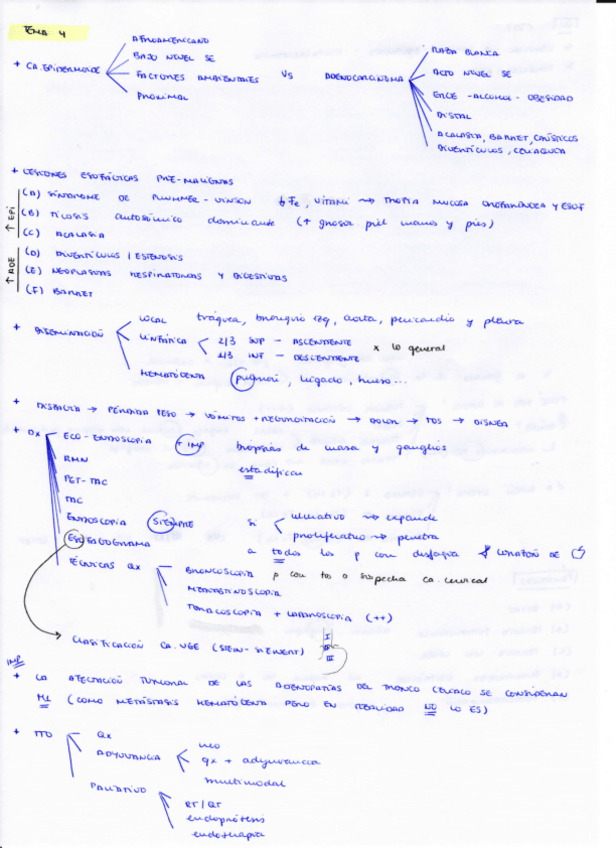 TEMA 4
+ CA. EPIDERMOIDE
AFROAMERICANO
BAJO NIVEL SE
FACTORES AMBIENTALES
PROXIMAL
VS
ADENOCARCINOMA
RAZA BLANCA
ALTO NIVEL SE
ERGE - ALCOHOL - OBESIDAD
DISTAL
ACALASIA, BARRET, CAÚSTICOS
DIVERTÍCULOS, CELIAQUÍA
+ LESIONES ESOFÁGICAS PRE-MALIGNAS
↑ EPI
(A) SÍNDROME DE PLUMMER-VINSON ↓ Fe, VITAMI → MUCOSA OROFARÍNGEA Y ESOF
(B) TILOSIS autosómico dominante (↑ grosor piel manos y pies)
(C) ACALASIA
↑ ADE
(D) DIVERTÍCULOS / ESTENOSIS
(E) NEOPLASIAS RESPIRATORIAS Y DIGESTIVAS
(F) BARRET
+ DISEMINACIÓN
LOCAL tráquea, bronquio izq, aorta, pericardio y pleura
LINFÁTICA
2/3 SUP - ASCENDENTE
1/3 INF - DESCENDENTE
x lo general
HEMATÓGENA pulmón, hígado, hueso...
+ DISFAGIA → PÉRDIDA PESO → VÓMITOS + REGURGITACIÓN → DOLOR → TOS → DISNEA
+ DX
ECO-ENDOSCOPIA +IMP biopsias de masa y ganglios
estadificar
RMN
PET-TAC
TAC
ENDOSCOPIA SIEMPRE si
ulcerativo → expande
proliferativo → penetra
ESOFAGOGRAMA a todos los p con disfagia
TÉCNICAS QX
BRONCOSCOPIA p con tos o sospecha ca. cervical
MEDIASTINOSCOPIA
TORACOSCOPIA + LAPAROSCOPIA (++)
CLASIFICACIÓN CA. UGE (STEIN-SIEWERT)
I
II
III
IMP
+ LA AFECTACIÓN TUMORAL DE LAS ADENOPATÍAS DEL TRONCO CELIACO SE CONSIDERAN
M1 (COMO METÁSTASIS HEMATÓGENA PERO EN REALIDAD NO LO ES)
+ TTO
QX
ADYUVANCIA
neo
qx + adyuvancia
multimodal
PALIATIVO
RT/QT
endoprótesis
endoterapia